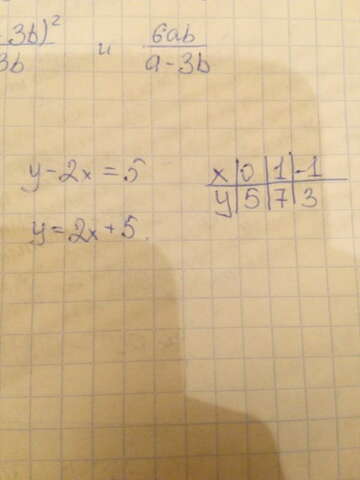 3b)² / 3b и 6ab / a-3b
y-2x=5
y=2x+5.
x | 0 | 1 | -1
y | 5 | 7 | 3